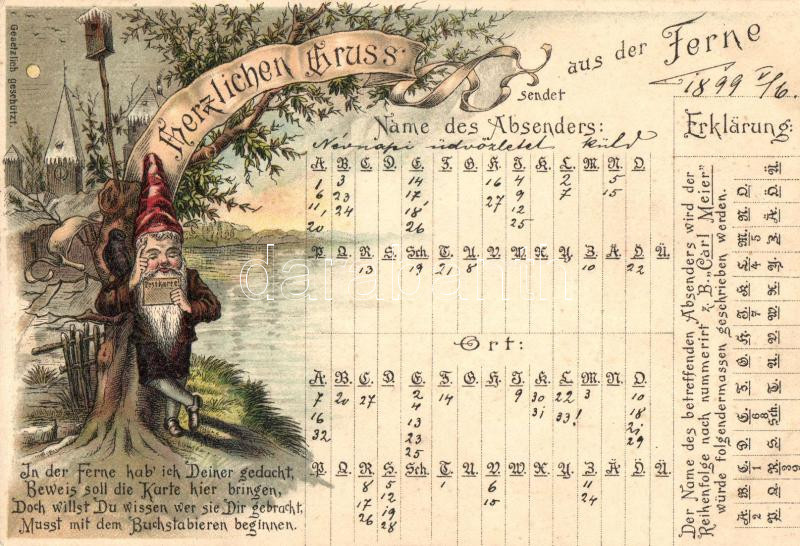 Gesetzlich geschützt
Herzlichen Gruss
sendet
aus der Ferne
1899 I/6.
Name des Absenders:
Névnapi üdvözletet küld
A. B. C. D. E. F. G. H. I. K. L. M. N. O.
1 3 14 16 4 2 5
6 23 17 27 9 7 15
11 24 18 12
20 26 25
P. Q. R. S. Sch. T. U. V. W. X. Y. Z. Ä. Ö. Ü.
13 19 21 8 10 22
Ort:
A. B. C. D. E. F. G. H. I. K. L. M. N. O.
7 20 27 2 14 9 30 22 3 10
16 4 31 33! 18
32 13 21
23 29
25
P. Q. R. S. Sch. T. U. V. W. X. Y. Z. Ä. Ö. Ü.
8 5 1 6 11
17 12 15 24
26 19
28
Postkarte!
In der Ferne hab' ich Deiner gedacht,
Beweis soll die Karte hier bringen,
Doch willst Du wissen wer sie Dir gebracht,
Musst mit dem Buchstabieren beginnen.
Erklärung:
Der Name des betreffenden Absenders wird der
Reihenfolge nach nummerirt z. B. "Carl Meier"
würde folgendermassen geschrieben werden.
A. B. C. D. E. F. G. H. I. K. L. M. N. O.
P. Q. R. S. Sch. T. U. V. W. X. Y. Z. Ä. Ö. Ü.
darabanth